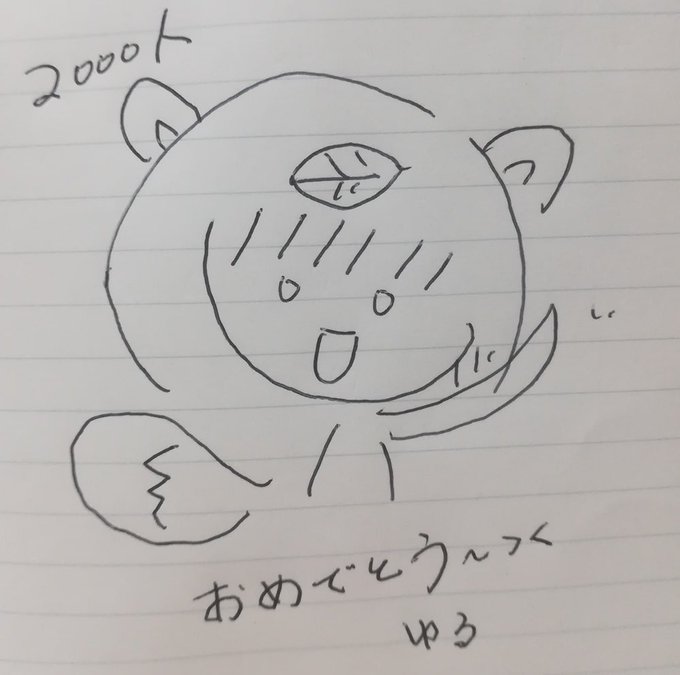 2000人
おめでとう〜っく
ゆる